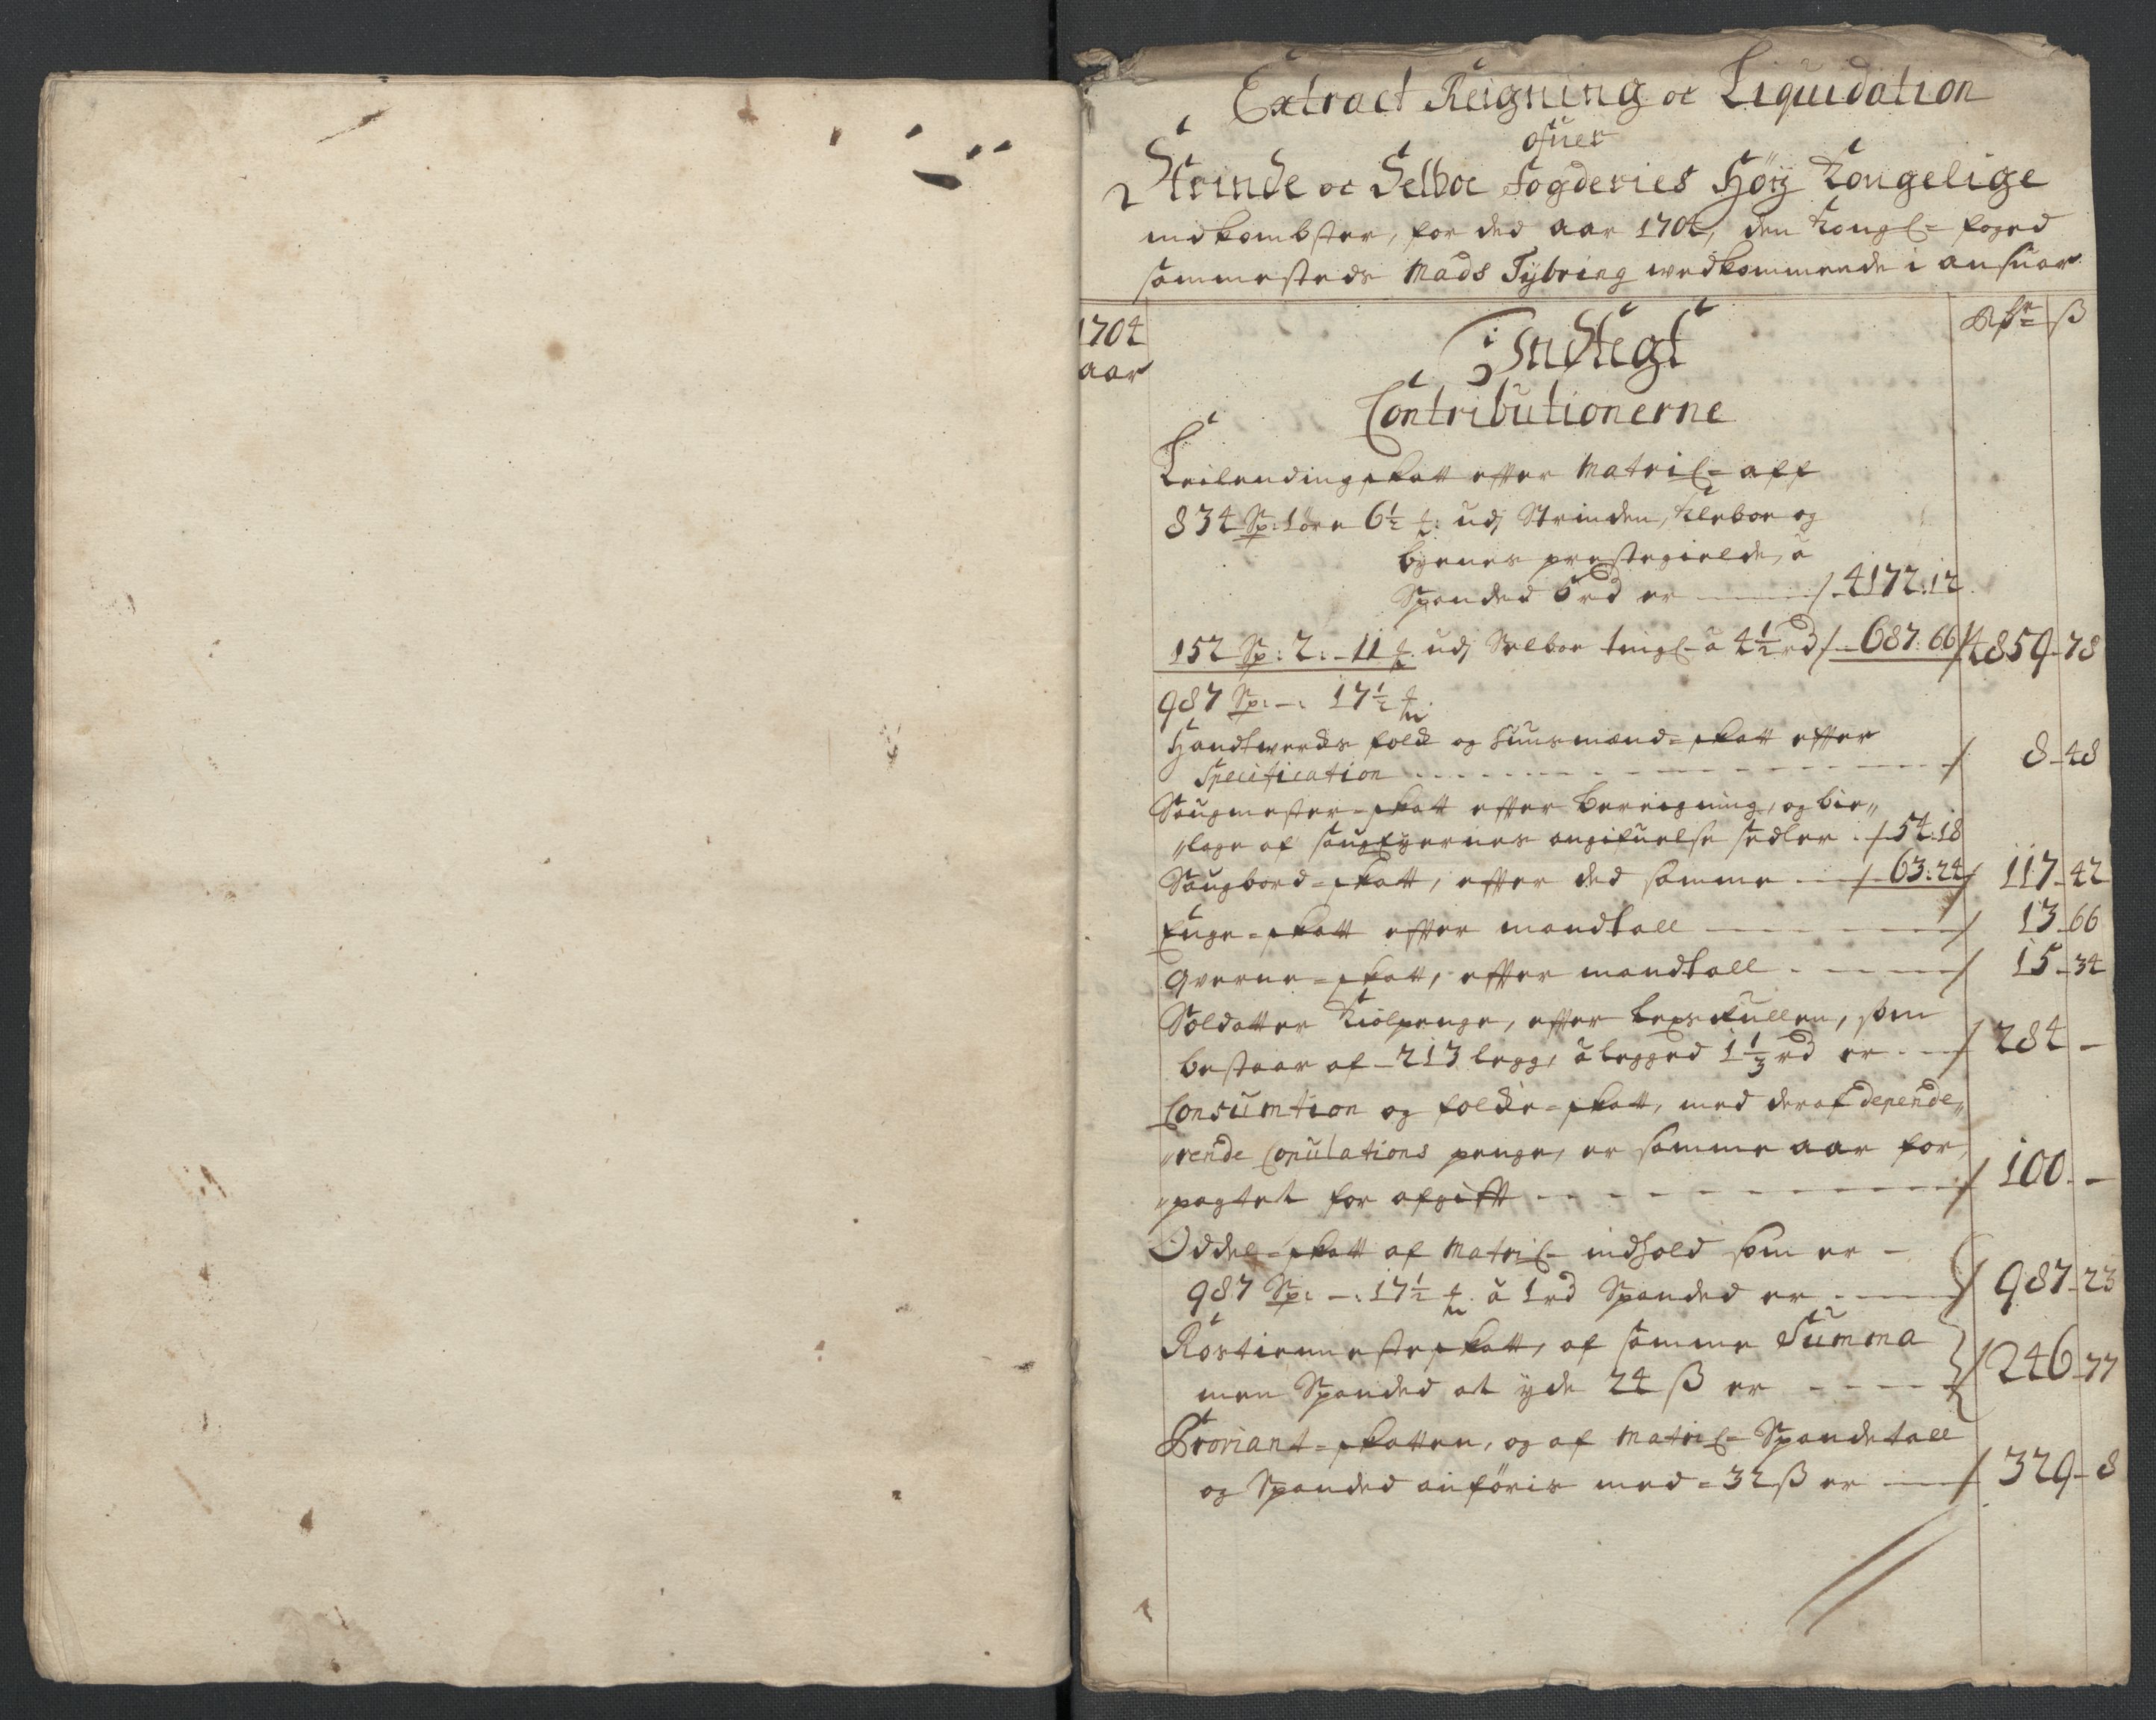 Extract Reigning oc Liquidation
ofuer
Strinde oc Selboe fogderies Höig Kongelige
indkombster, for ded aar 1704, den Kongl= foged
sammesteds Mads Tÿbring wedkommende i ansuar
Rdr ß
1704
aar
Indtegt
Contributionerne
Leilendingskatt efter Matricl= aff
834 Sp: 1 øre 6½ udj Strinden, Kleboe og
byenes prestegields, à
Spanded 5 rd er 4172:12
152 Sp: 2: - 11 udj Selboe tingl- à 4½ rd 687:66 4859-78
987 Sp: -: 17½
Handtwercks folck og huusmænd=skatt efter
Specification 8-48
Saugmester=skatt efter bereigning, og bie„
„lage af saugeyernes angifuelse sedler 54:18
Saugbord=skatt, efter ded samme 63:24 117-42
Enge=skatt efter mandtall 13-66
Qverne=skatt, efter mandtall 15-34
Soldatter Kiolpenge, efter legsrullen, som
bestaar af - 213 legg, à legged 1⅓ rd er 284 -
Consumtion og folcke=skatt, med deraf depende„
„rende Copulations penge, er samme aar for
„pagtet for afgift 100 -
Oddel=skatt af Matricl- indhold som er -
987 Sp: -: 17½ à 1 rd Spanded er 987-23
Rostienneste skatt, af samme Summa
men Spanded at yde 24 ß er 246-77
Proviant=skatten, og af Matricl- Spandetall
og Spanded anföris med = 32 ß er 329-8